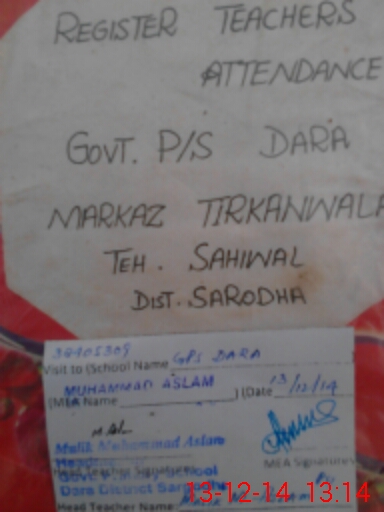 REGISTER TEACHERS
ATTENDANCE
GOVT. P/S DARA
MARKAZ TIRKANWALA
TEH. SAHIWAL
DIST. SARODHA
38405309
Visit to (School Name GPS DARA
MUHAMMAD ASLAM
(MEA Name ) (Date 13/12/14
Malik Muhammad Aslam
Head Teacher Signature
MEA Signature
Govt. P. School
Dara District Sargodha
Head Teacher Name: Malik
13-12-14 13:14